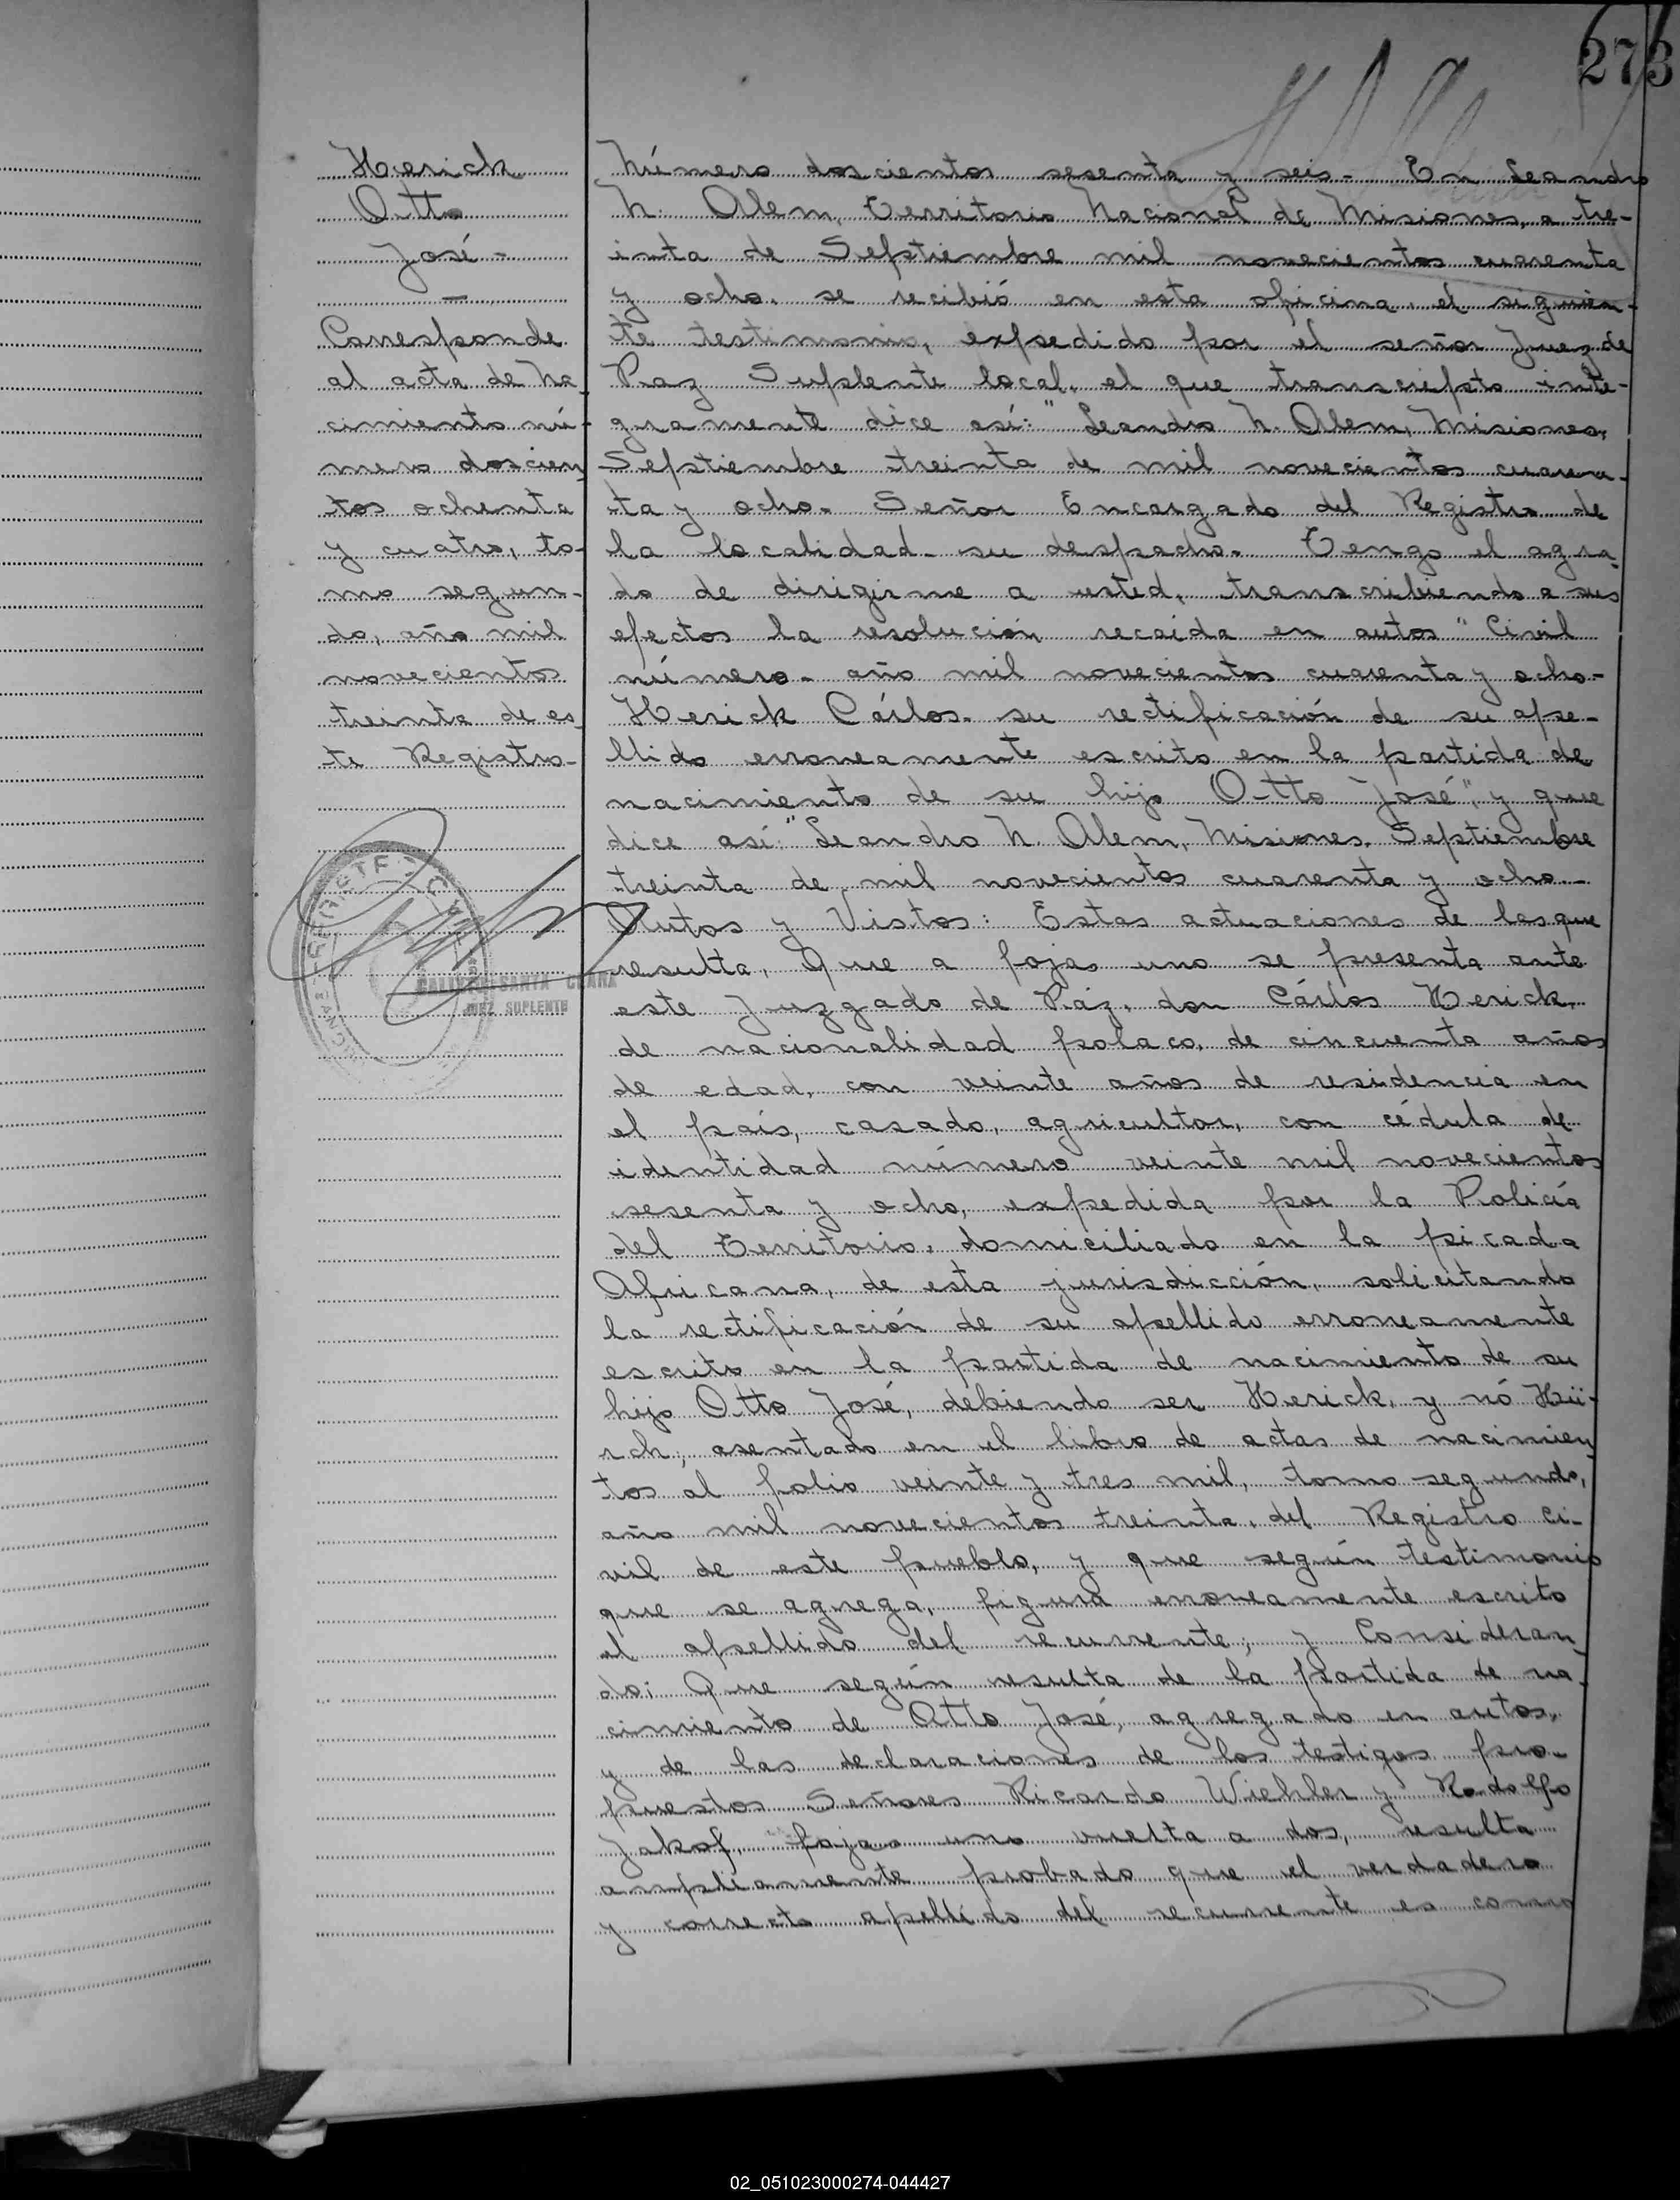 273
Herick
Otto
José -
Corresponde
al acta de na
cimiento nú-
mero doscien
tos ochenta
y cuatro, to-
mo segun-
do, año mil
novecientos
treinta de es
te Registro-
SANTA CLARA
JUEZ SUPLENTE
Número doscientos sesenta y seis- En Leandro
N. Alem, Territorio Nacional de Misiones, a tre-
inta de Septiembre mil novecientos cuarenta
y ocho. se recibió en esta oficina, el siguien-
te testimonio, expedido por el señor Juez de
Paz Suplente local, el que transcripto inte-
gramente dice así: "Leandro N. Alem, Misiones,
Septiembre treinta de mil novecientos cuaren-
ta y ocho. Señor Encargado del Registro de
la localidad. su despacho. Tengo el agra
do de dirigirme a usted, transcribiendo a sus
efectos la resolución recaída en autos "Civil
número- año mil novecientos cuarenta y ocho-
Herick Cárlos- su rectificación de su ape-
llido erroneamente escrito en la partida de
nacimiento de su hijo Otto José", y que
dice así: "Leandro N. Alem, Misiones, Septiembre
treinta de mil novecientos cuarenta y ocho-
Autos y Vistos: Estas actuaciones de las que
resulta, Que a fojas uno se presenta ante
este Juzgado de Páz, don Cárlos Herick,
de nacionalidad polaco, de cincuenta años
de edad, con veinte años de residencia en
el país, casado, agricultor, con cédula de
identidad número veinte mil novecientos
sesenta y ocho, expedida por la Policía
del Territorio, domiciliado en la picada
Africana, de esta jurisdicción, solicitando
la rectificación de su apellido erroneamente
escrito en la partida de nacimiento de su
hijo Otto José, debiendo ser Herick, y nó Hü-
rch, asentado en el libro de actas de nacimien
tos al folio veinte y tres mil, tomo segundo,
año mil novecientos treinta, del Registro Ci-
vil de este pueblo, y que según testimonio
que se agrega, figura erroneamente escrito
el apellido del recurrente; y Consideran
do: Que según resulta de la partida de na
cimiento de Otto José, agregado en autos,
y de las declaraciones de los testigos pro-
puestos Señores Ricardo Wiehler y Rodolfo
Jakof, fojas uno vuelta a dos, resulta
ampliamente probado que el verdadero
y correcto apellido del recurrente es como
02_051023000274-044427